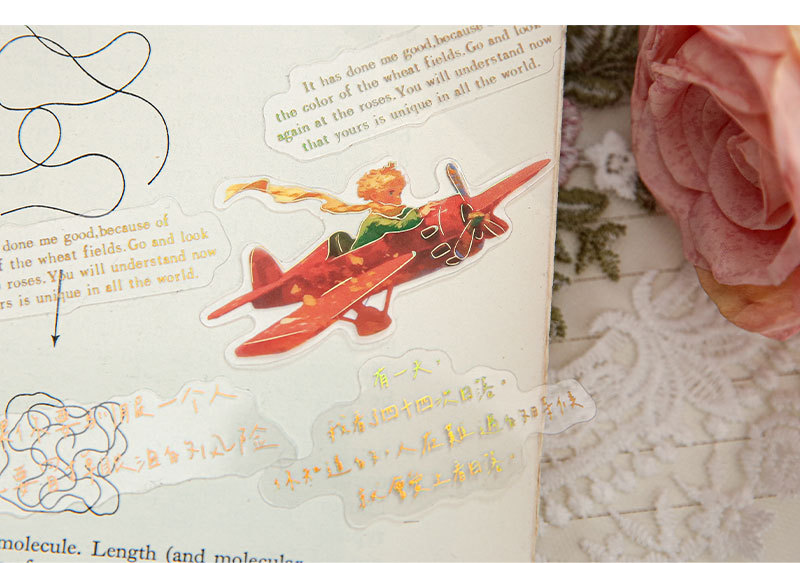 It has done me good,because of
the color of the wheat fields.Go and look
again at the roses.You will understand now
that yours is unique in all the world.
done me good,because of
f the wheat fields.Go and look
roses.You will understand now
rs is unique in all the world.
有一天，
我看了四十四次日落。
你知道的，人在难过的时候
就会爱上看日落。
一个人
风险
molecule. Length (and molecular